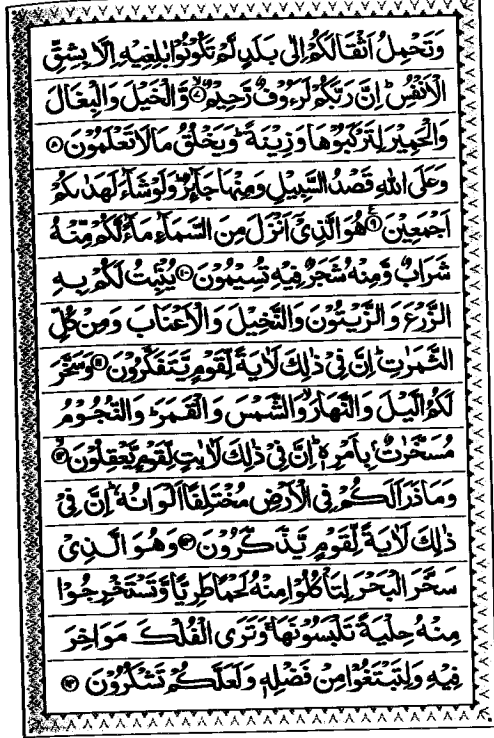 وَتَحْمِلُ اَثْقَالَكُمْ اِلٰى بَلَدٍ لَّمْ تَكُوْنُوْا بٰلِغِيْهِ اِلَّا بِشِقِّ
الْاَنْفُسِ ؕ اِنَّ رَبَّكُمْ لَرَءُوْفٌ رَّحِيْمٌ ۙ۷ وَّالْخَيْلَ وَالْبِغَالَ
وَالْحَمِيْرَ لِتَرْكَبُوْهَا وَزِيْنَةً ؕ وَيَخْلُقُ مَا لَا تَعْلَمُوْنَ ۸
وَعَلَى اللّٰهِ قَصْدُ السَّبِيْلِ وَمِنْهَا جَآئِرٌ ؕ وَلَوْ شَآءَ لَهَدٰىكُمْ
اَجْمَعِيْنَ ۹ ع هُوَ الَّذِيْٓ اَنْزَلَ مِنَ السَّمَآءِ مَآءً لَّكُمْ مِّنْهُ
شَرَابٌ وَّمِنْهُ شَجَرٌ فِيْهِ تُسِيْمُوْنَ ۱۰ يُنْۢبِتُ لَكُمْ بِهِ
الزَّرْعَ وَالزَّيْتُوْنَ وَالنَّخِيْلَ وَالْاَعْنَابَ وَمِنْ كُلِّ
الثَّمَرٰتِ ؕ اِنَّ فِيْ ذٰلِكَ لَاٰيَةً لِّقَوْمٍ يَّتَفَكَّرُوْنَ ۱۱ وَسَخَّرَ
لَكُمُ الَّيْلَ وَالنَّهَارَ ۙ وَالشَّمْسَ وَالْقَمَرَ ؕ وَالنُّجُوْمُ
مُسَخَّرٰتٌۢ بِاَمْرِهٖ ؕ اِنَّ فِيْ ذٰلِكَ لَاٰيٰتٍ لِّقَوْمٍ يَّعْقِلُوْنَ ۙ۱۲
وَمَا ذَرَاَ لَكُمْ فِى الْاَرْضِ مُخْتَلِفًا اَلْوَانُهٗ ؕ اِنَّ فِيْ
ذٰلِكَ لَاٰيَةً لِّقَوْمٍ يَّذَّكَّرُوْنَ ۱۳ وَهُوَ الَّذِيْ
سَخَّرَ الْبَحْرَ لِتَاْكُلُوْا مِنْهُ لَحْمًا طَرِيًّا وَّتَسْتَخْرِجُوْا
مِنْهُ حِلْيَةً تَلْبَسُوْنَهَا ۚ وَتَرَى الْفُلْكَ مَوَاخِرَ
فِيْهِ وَلِتَبْتَغُوْا مِنْ فَضْلِهٖ وَلَعَلَّكُمْ تَشْكُرُوْنَ ۱۴